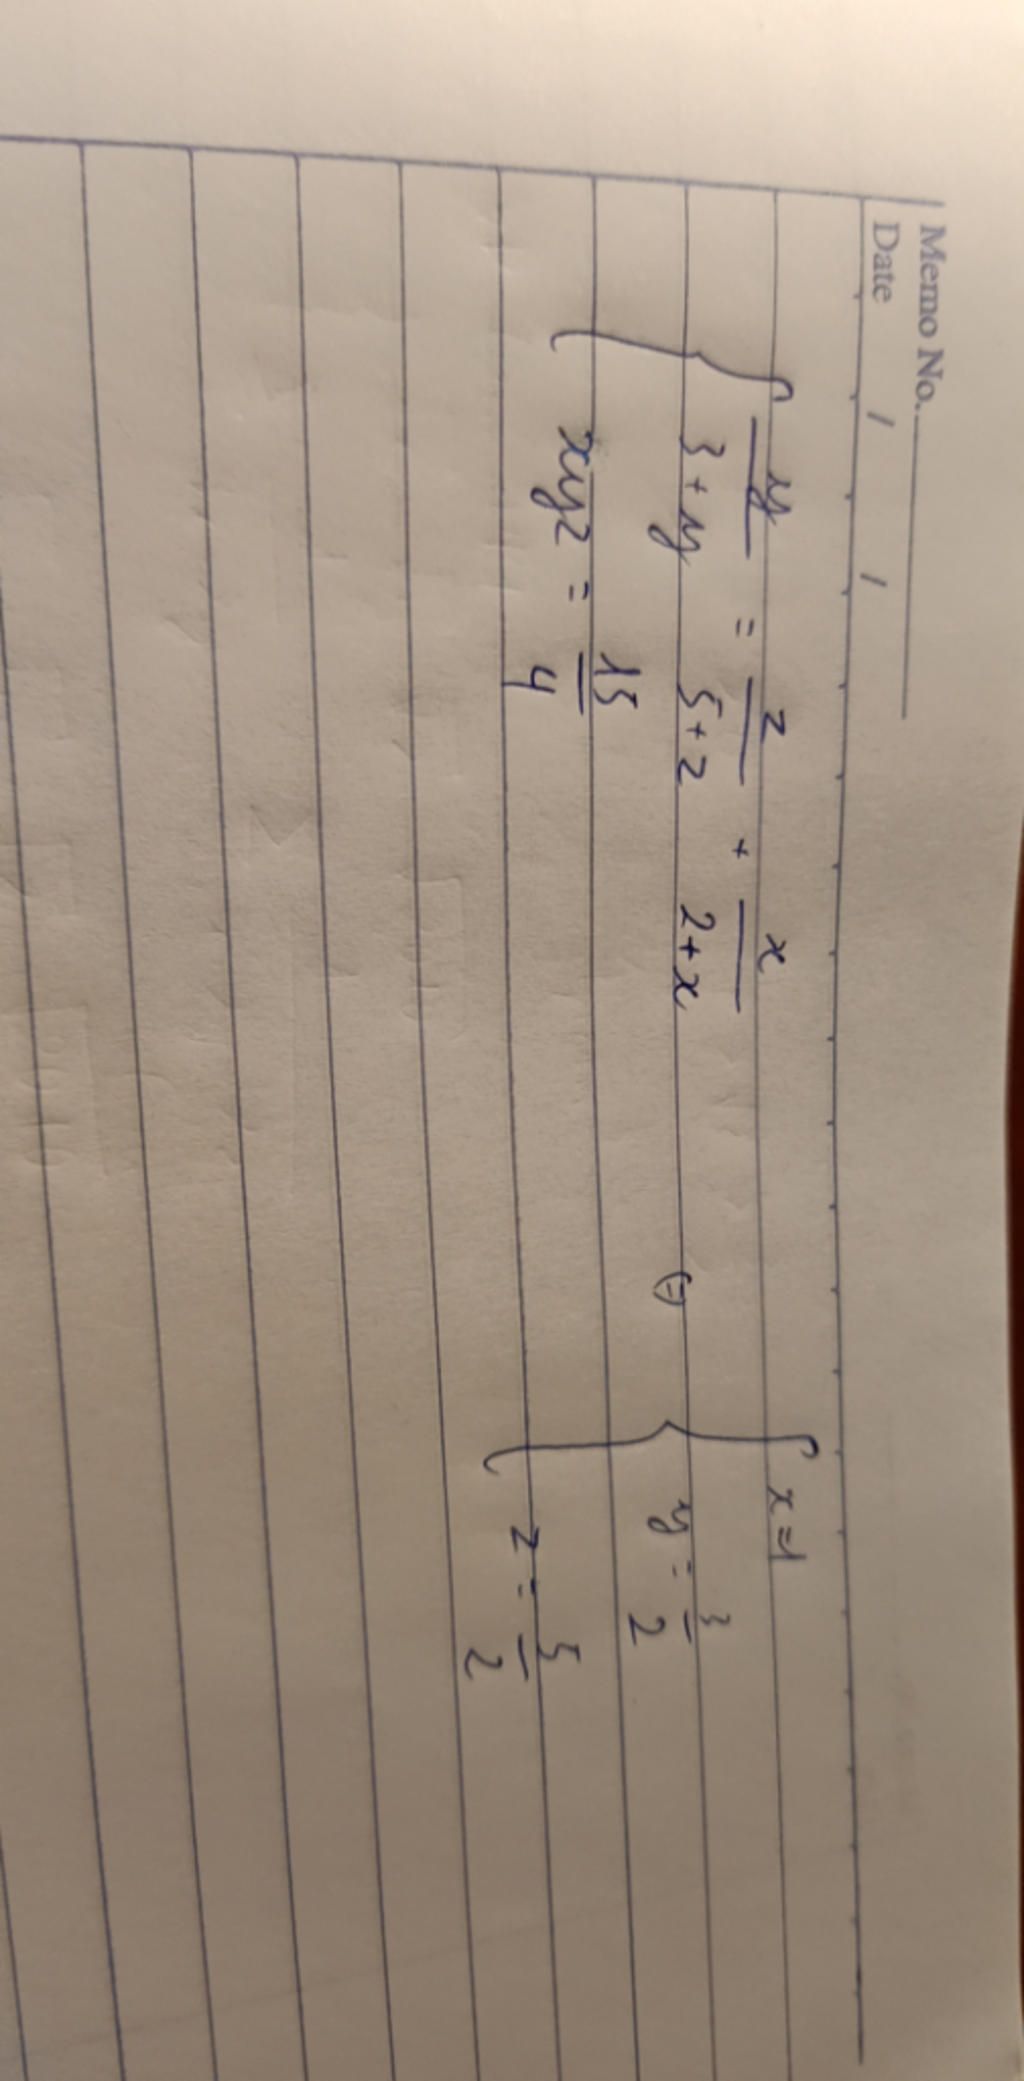 Memo No.
Date / /
y/(3+y) = z/(5+z) + x/(2+x)
xyz = 15/4
⇔
x=1
y = 3/2
z = 5/2